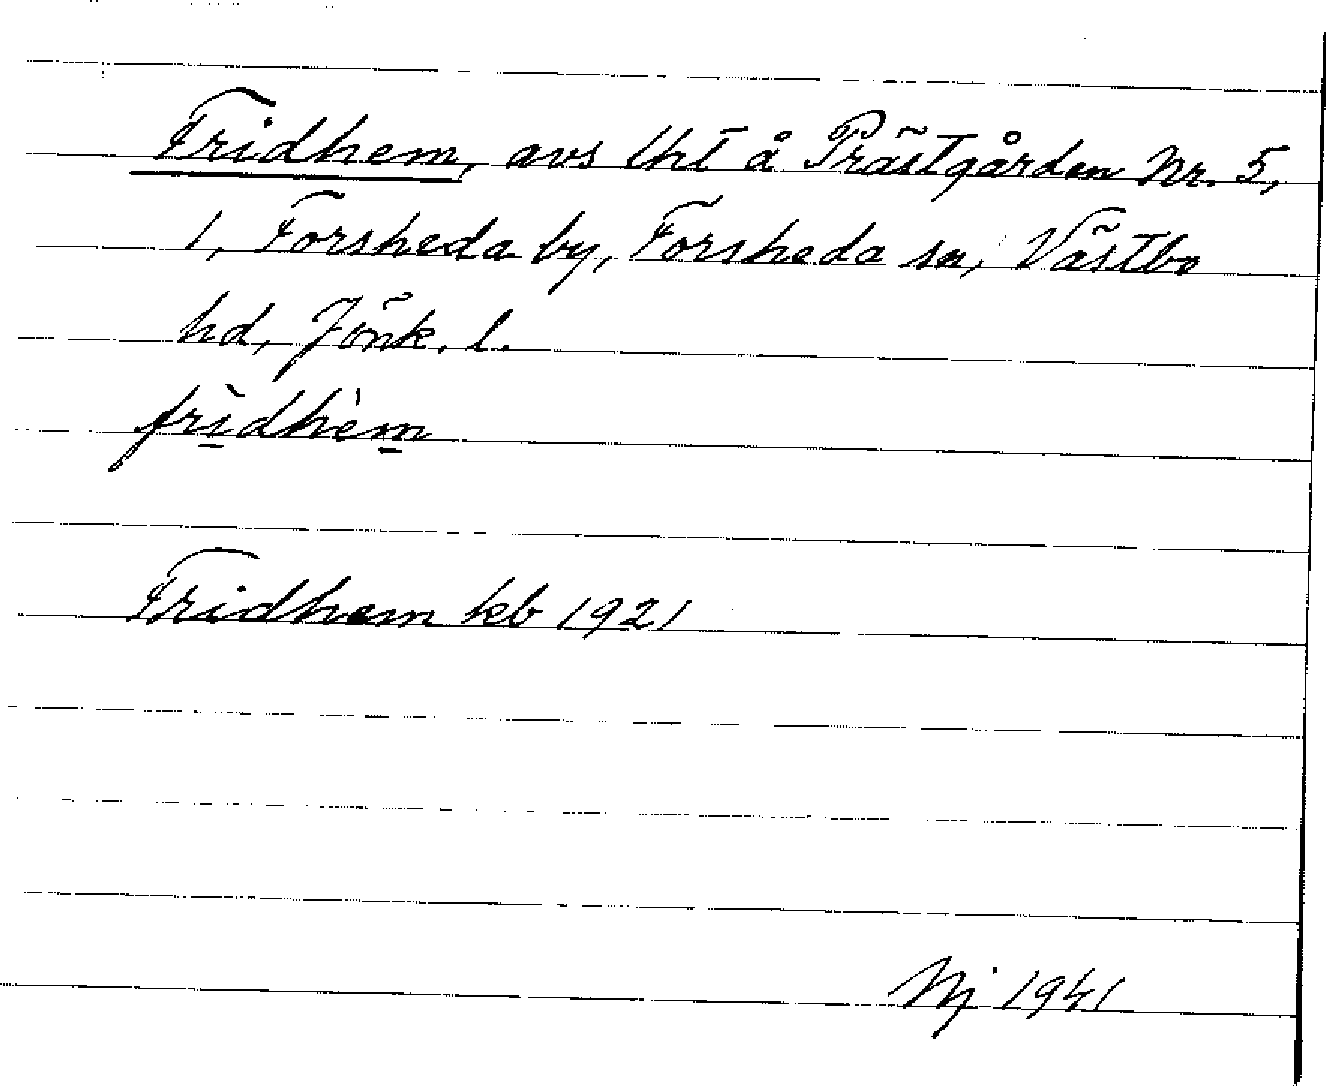 Fridhem, avs lht å Prästgården Nr. 5,
1, Forsheda by, Forsheda sn, Västbo
hd, Jönk. l.
fridhèm
Fridhem kb 1921
Nj 1941